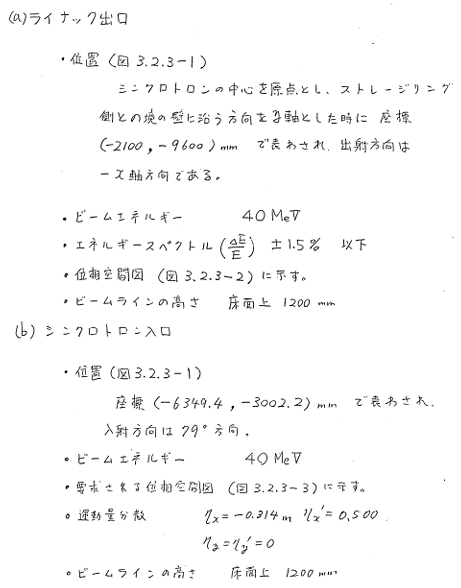 (a)ライナック出口
・位置(図3.2.3-1)
シンクロトロンの中心を原点とし、ストレージリング
側との境の壁に沿う方向をy軸とした時に 座標
(-2100, -9600) mm で表わされ、出射方向は
-x軸方向である。
・ビームエネルギー 40 MeV
・エネルギースペクトル (ΔE/E) ±1.5% 以下
・位相空間図 (図3.2.3-2) に示す。
・ビームラインの高さ 床面上 1200 mm
(b) シンクロトロン入口
・位置(図3.2.3-1)
座標 (-6349.4, -3002.2) mm で表わされ、
入射方向は79°方向。
・ビームエネルギー 40 MeV
・要求される位相空間図 (図3.2.3-3)に示す。
・運動量分散 ηx=-0.314 m ηx'=0.500
ηy=ηy'=0
・ビームラインの高さ 床面上 1200 mm